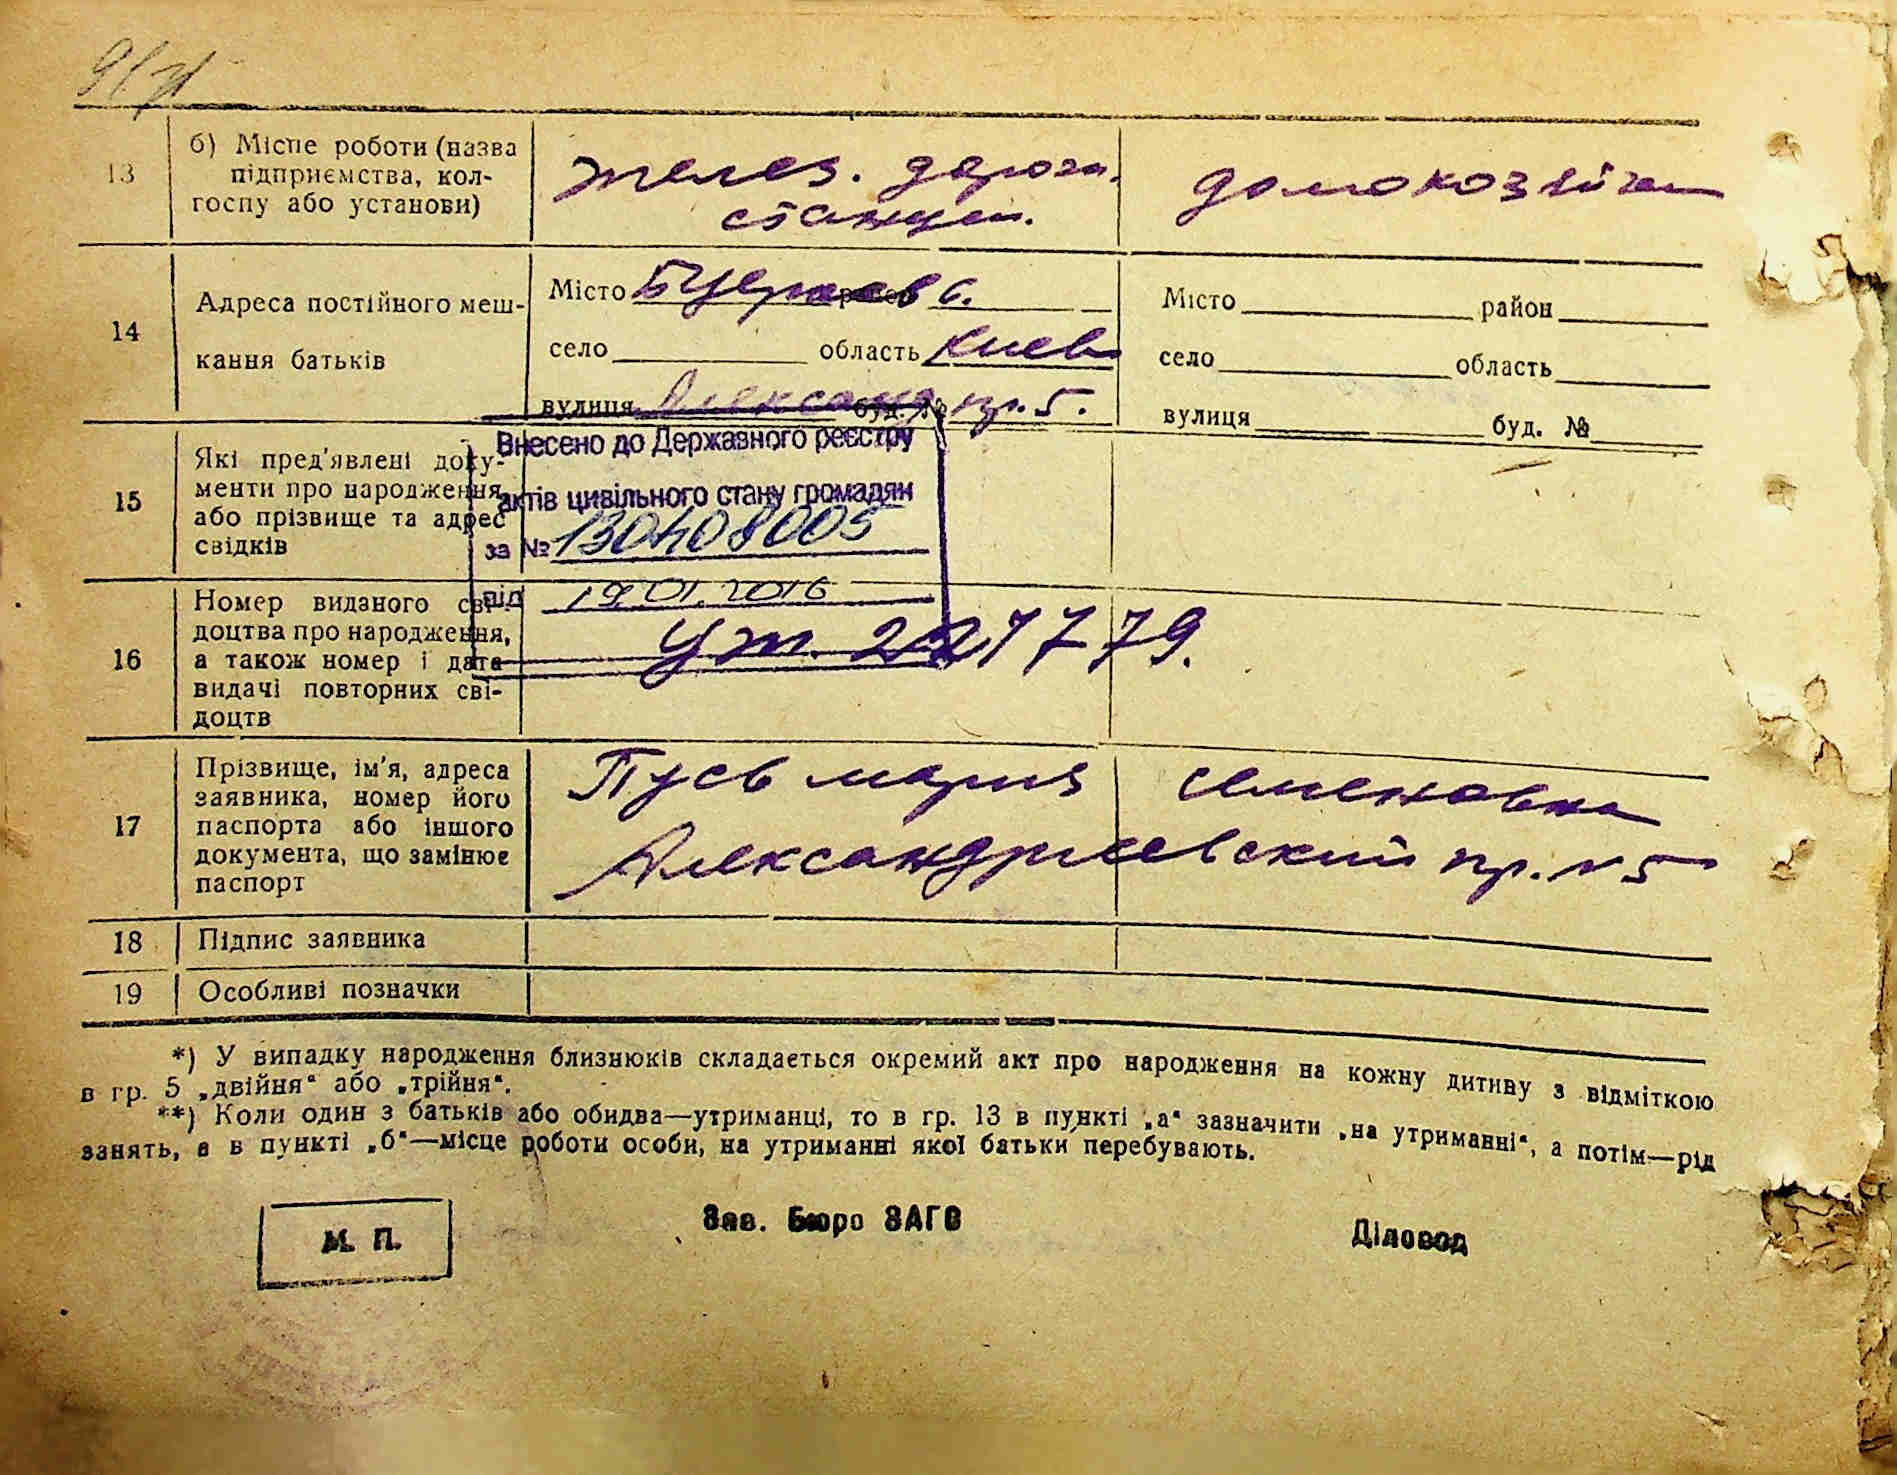 13
б) Місце роботи (назва
підприємства, кол-
госпу або установи)
желез. дорога.
станция.
домохозяйка
14
Адреса постійного меш-
кання батьків
Місто Б Церков
село область Киев
вулиця Александ буд. № пр. 5.
Місто район
село область
вулиця буд. №
15
Які пред'явлені доку-
менти про народження
або прізвище та адрес
свідків
Внесено до Державного реєстру
актів цивільного стану громадян
за № 130408005
від 19.01.2016
16
Номер виданого сві-
доцтва про народження,
а також номер і дата
видачі повторних сві-
доцтв
779.
17
Прізвище, ім'я, адреса
заявника, номер його
паспорта або іншого
документа, що замінює
паспорт
Пусь Мария Семеновна
Александриевский пр. № 5
18 Підпис заявника
19 Особливі позначки
*) У випадку народження близнюків складається окремий акт про народження на кожну дитину з відміткою
в гр. 5 „двійня“ або „трійня“.
**) Коли один з батьків або обидва—утриманці, то в гр. 13 в пункті „а“ зазначити „на утриманні“, а потім—рід
занять, а в пункті „б“—місце роботи особи, на утриманні якої батьки перебувають.
М. П.
Зав. Бюро ЗАГС
Діловод